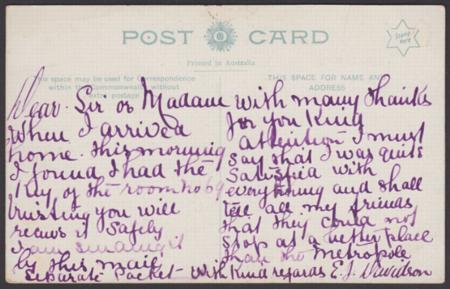 POST CARD
Stamp
Here
Printed in Australia
This space may be used for Correspondence
within the Commonwealth without
extra postage
THIS SPACE FOR NAME AND
ADDRESS
Dear Sir or Madam
When I arrived
home this morning
I found I had the
key of the room no 69
trusting you will
it safely
I am sending it
by this mail
separate packet -
with many thanks
for you kind
attention I must
say that I was quite
satisfied with
everything and shall
tell all my friends
that they could not
stop at a better place
than the Metropole
With kind regards E. J. Davidson